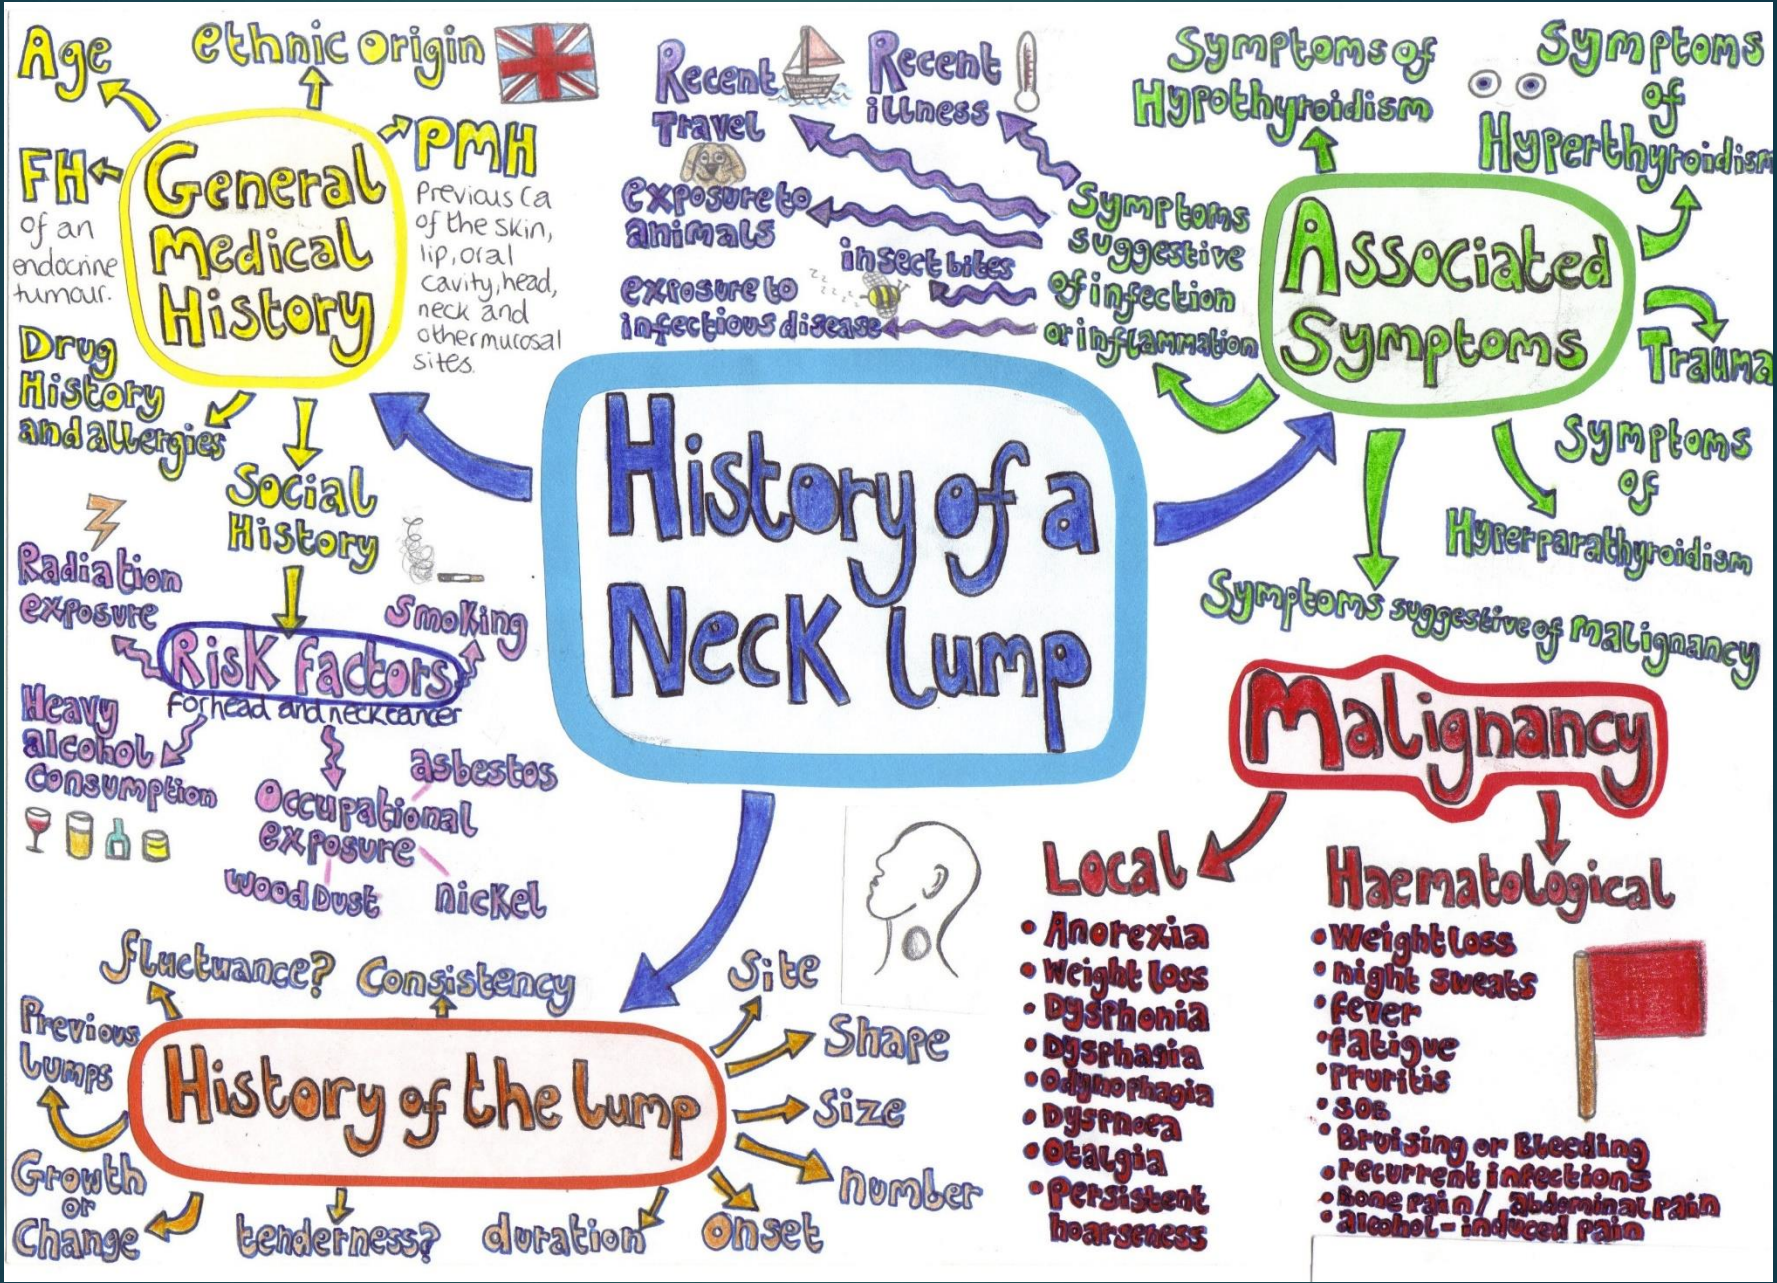 History of a
Neck lump
General
Medical
History
Age
ethnic origin
PMH
Previous Ca
of the skin,
lip, oral
cavity, head,
neck and
other mucosal
sites.
FH
of an
endocrine
tumour.
Drug
History
and allergies
Social
History
Risk factors
for head and neck cancer
Radiation
exposure
Smoking
Heavy
alcohol
consumption
Occupational
exposure
asbestos
wood Dust
nickel
Associated
Symptoms
Symptoms of
Hypothyroidism
Symptoms
of
Hyperthyroidism
Trauma
Symptoms
of
Hyperparathyroidism
Symptoms suggestive of malignancy
Symptoms
suggestive
of infection
or inflammation
Recent
Travel
Recent
illness
exposure to
animals
insect bites
zz
zzzz
exposure to
infectious disease
Malignancy
Local
• Anorexia
• Weight loss
• Dysphonia
• Dysphagia
• Odynophagia
• Dyspnoea
• Otalgia
• Persistent
hoarseness
Haematological
• Weight loss
• night sweats
• fever
• fatigue
• Pruritis
• SOB
• Bruising or Bleeding
• recurrent infections
• Bone pain / abdominal pain
• alcohol-induced pain
History of the lump
Previous
lumps
fluctuance?
Consistency
Site
Shape
Size
number
onset
duration
tenderness?
Growth
or
Change